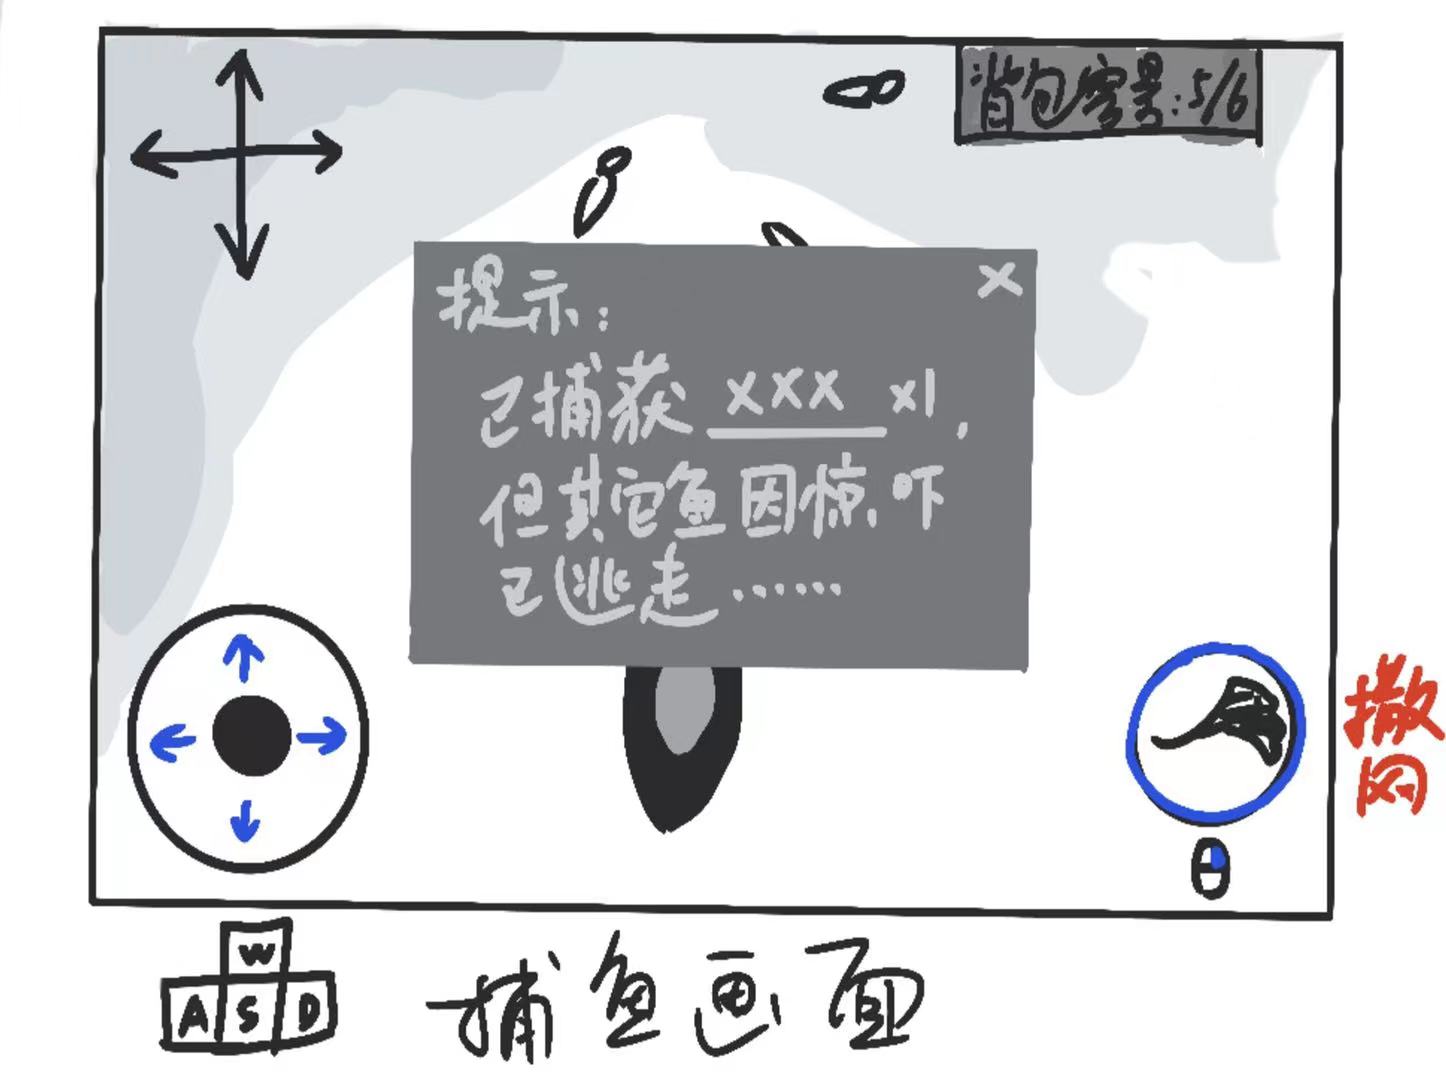 背包容量:5/6
提示:
已捕获 XXX x1,
但其它鱼因惊吓
已逃走……
撒
网
W
A S D
捕鱼画面